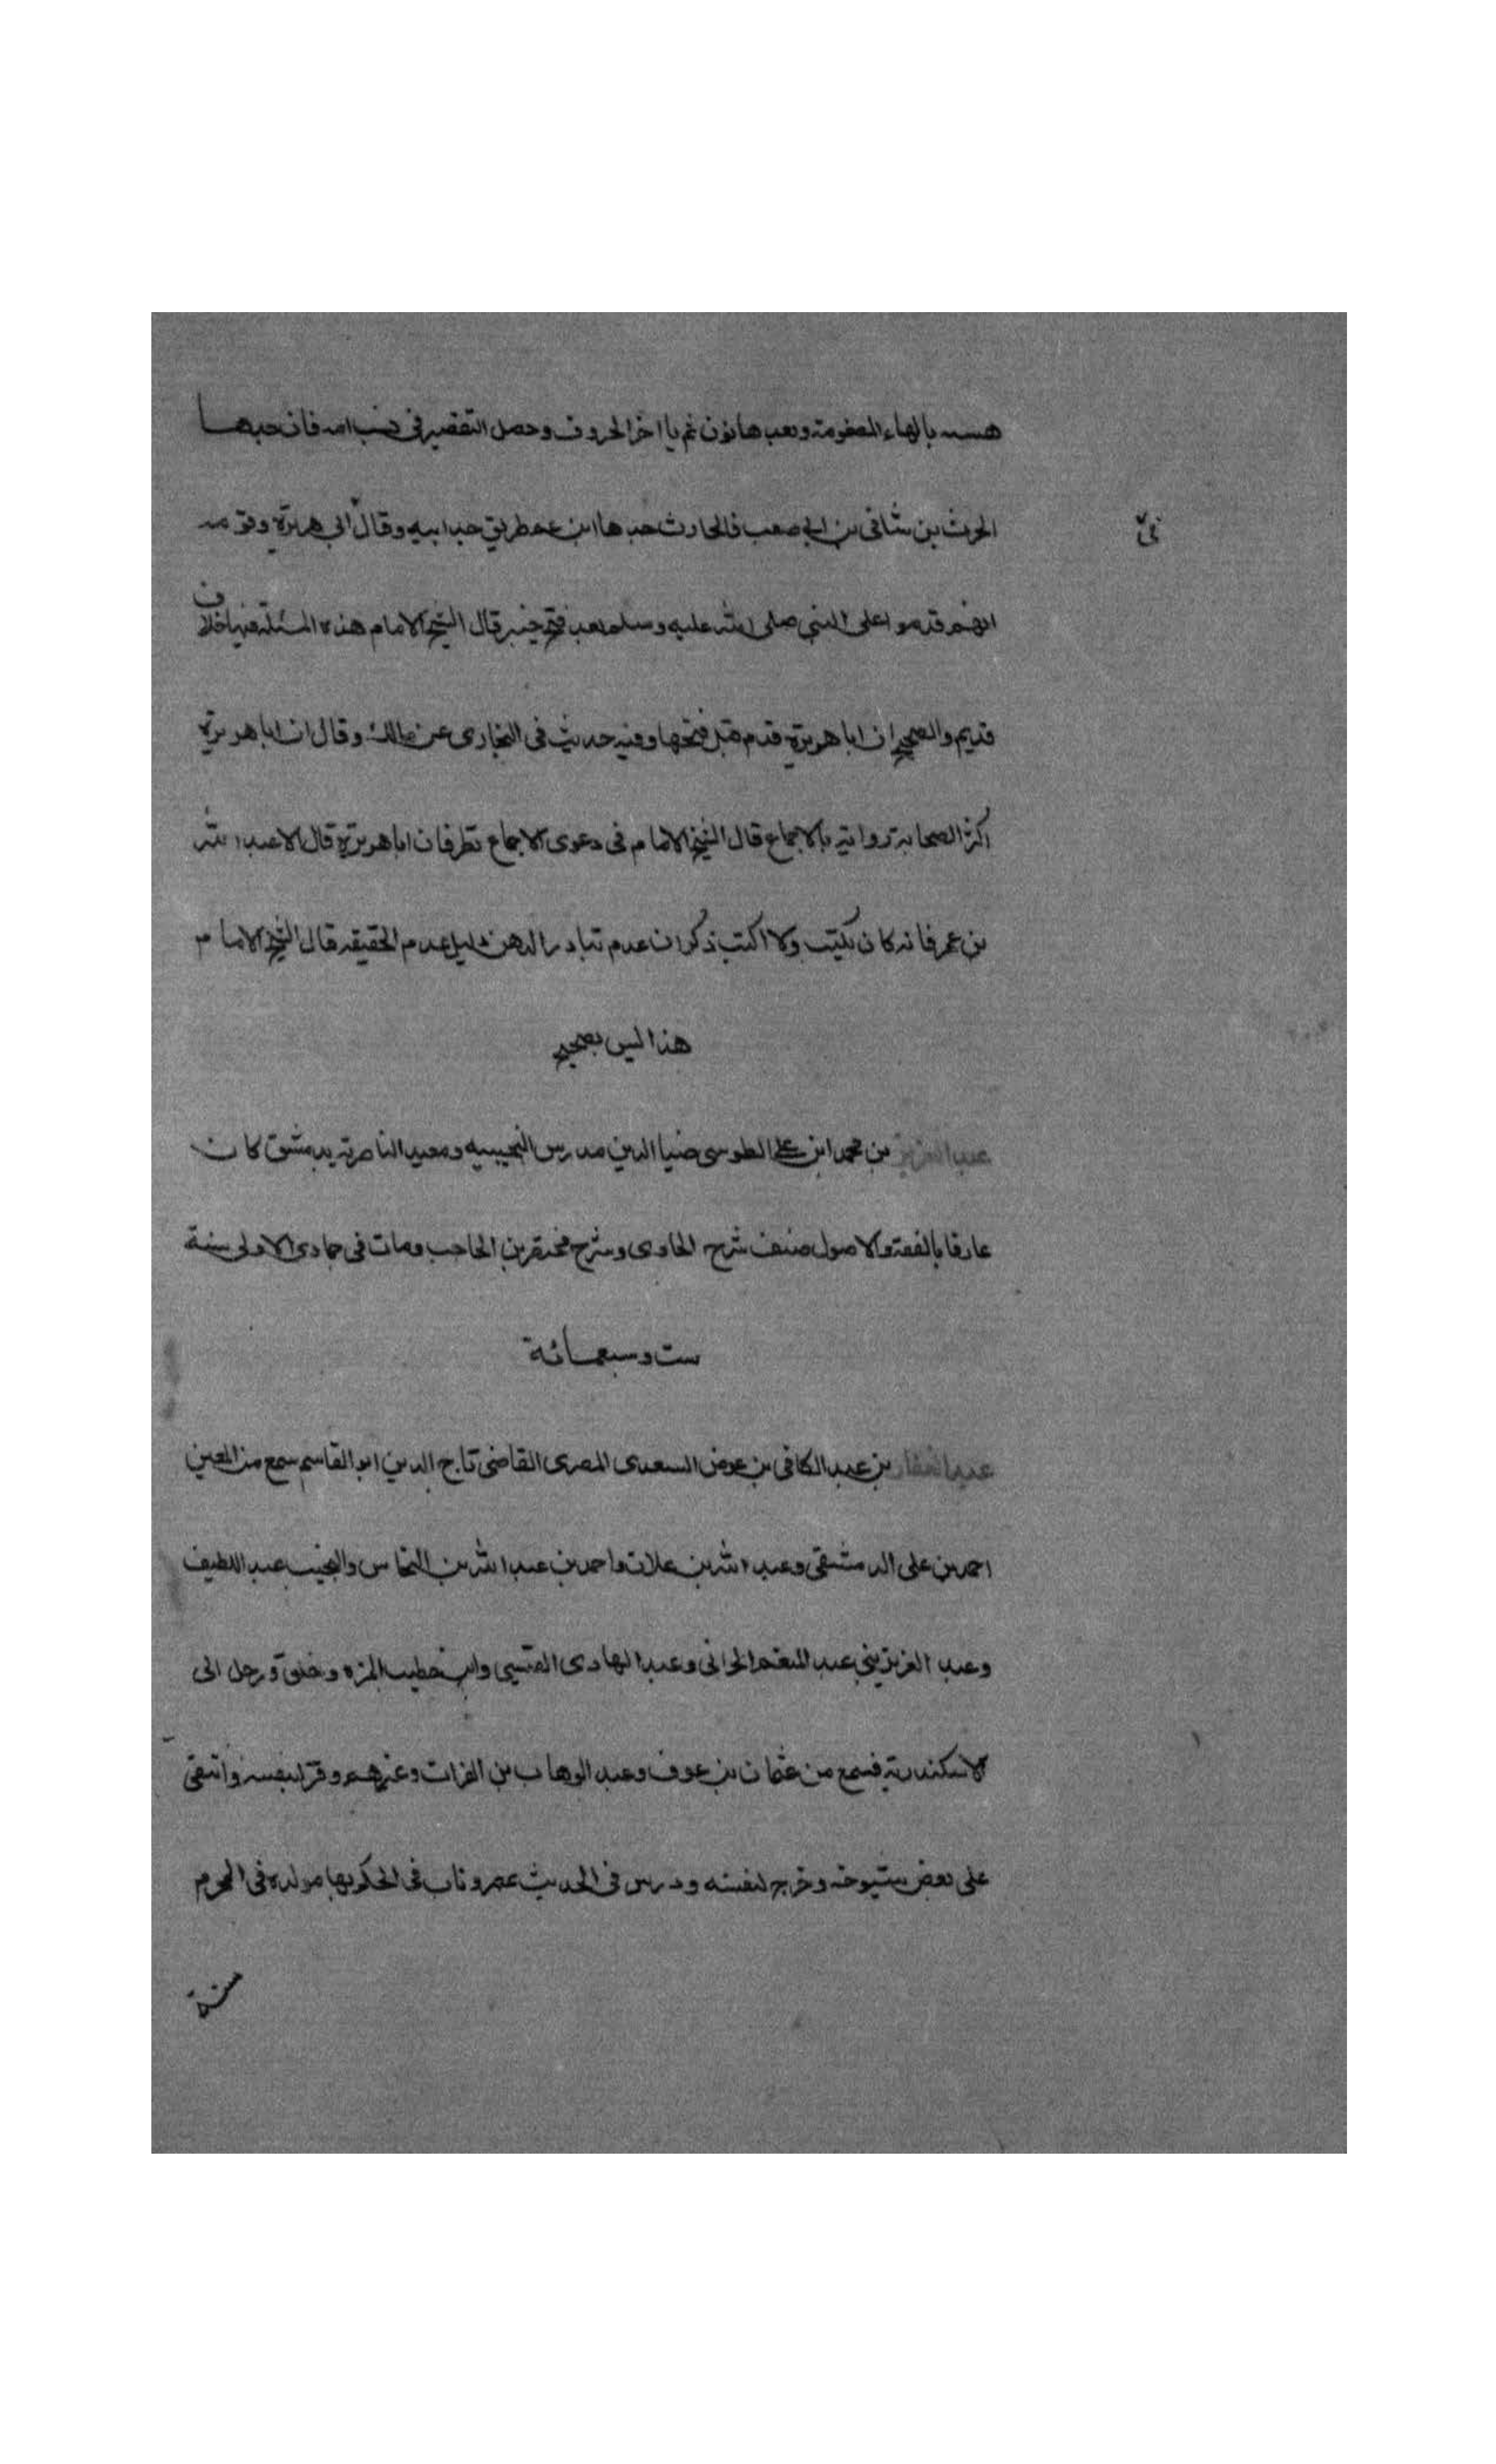 هسه بالهاء المضمومة وبعدها نون ثم يا اخر الحروف وحصل التقصير في نسب امه فان جدها
الحرث بن شافي بن ابي صعب فالحارث جدها ابن عم طريق جد ابيه وقال ابي هريرة وقومه
انهم قدموا على النبي صلى الله عليه وسلم بعد فتح خيبر قال الشيخ الامام هذه المسئلة فيها خلاف
قديم والصحيح ان ابا هريرة قدم قبل فتحها وفيه حديث في البخاري عن مالك وقال ان ابا هريرة
اكثر الصحابة رواية بالاجماع قال الشيخ الامام في دعوى الاجماع نظر فان ابا هريرة قال الا عبد الله
بن عمر فانه كان يكتب ولا اكتب ذكر ان عدم تبادر الذهن دليل عدم الحقيقه قال الشيخ الامام
هذا ليس بصحيح
عبد العزيز بن محمد ابن علي الطوسي ضيا الدين مدرس النجيبيه ومعيد الناصرية بدمشق كان
عارفا بالفقه والاصول صنف شرح الحاوى وشرح مختصر بن الحاجب ومات في جمادى الاولى سنة
ست وسبعمائة
عبد الغفار بن عبد الكافي بن عوض السعدى المصرى القاضى تاج الدين ابو القاسم سمع من المعين
احمد بن على الدمشقي وعبد الله بن علان واحمد بن عبد الله بن النحاس والنجيب عبد اللطيف
وعبد العزيز بني عبد المنعم الحرانى وعبد الهادى القيسي وابن خطيب المزه وخلق ورحل الى
الاسكندرية فسمع من عثمان بن عوف وعبد الوهاب بن الفرات وغيرهم وقرا لنفسه وانتقى
على بعض شيوخه وخرج لنفسه ودرس في الحديث بمصر وناب في الحكم بها مولده في المحرم
سنة